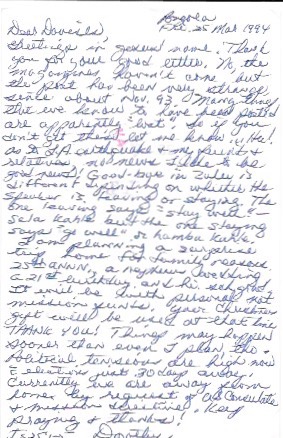 Angola
Fri. 25 Mar 1994
Dear Davises,
Greetings in Jesus' name! Thank
you for your good letter. No, the
magazines haven't come, but
the post has been very strange
since about Nov. 93. Many things
that we know to have been posted
are apparently "lost", so if you
don't get these let me know, ha!
As to LA earthquake & my friends &
relatives no news I take to be
good news! Good-bye in Zulu is
different depending on whether the
speaker is leaving or staying. The
one leaving says "stay well" –
sala kahle but the one staying
says "go well" or hamba kahle!
I am planning a surprise
trip home for family reasons
25th ann., a nephew's wedding
a 21st birthday, and his sch grad.
It will be with personal not
mission funds. Your Christmas
gift will be used at that time
THANK YOU! Things may happen
sooner than even I plan the
political tensions are high now
elections just 30 days away.
Currently we are away from
home by request of US Consulate
& mission directives. Keep
praying & thanks!
Dorothy